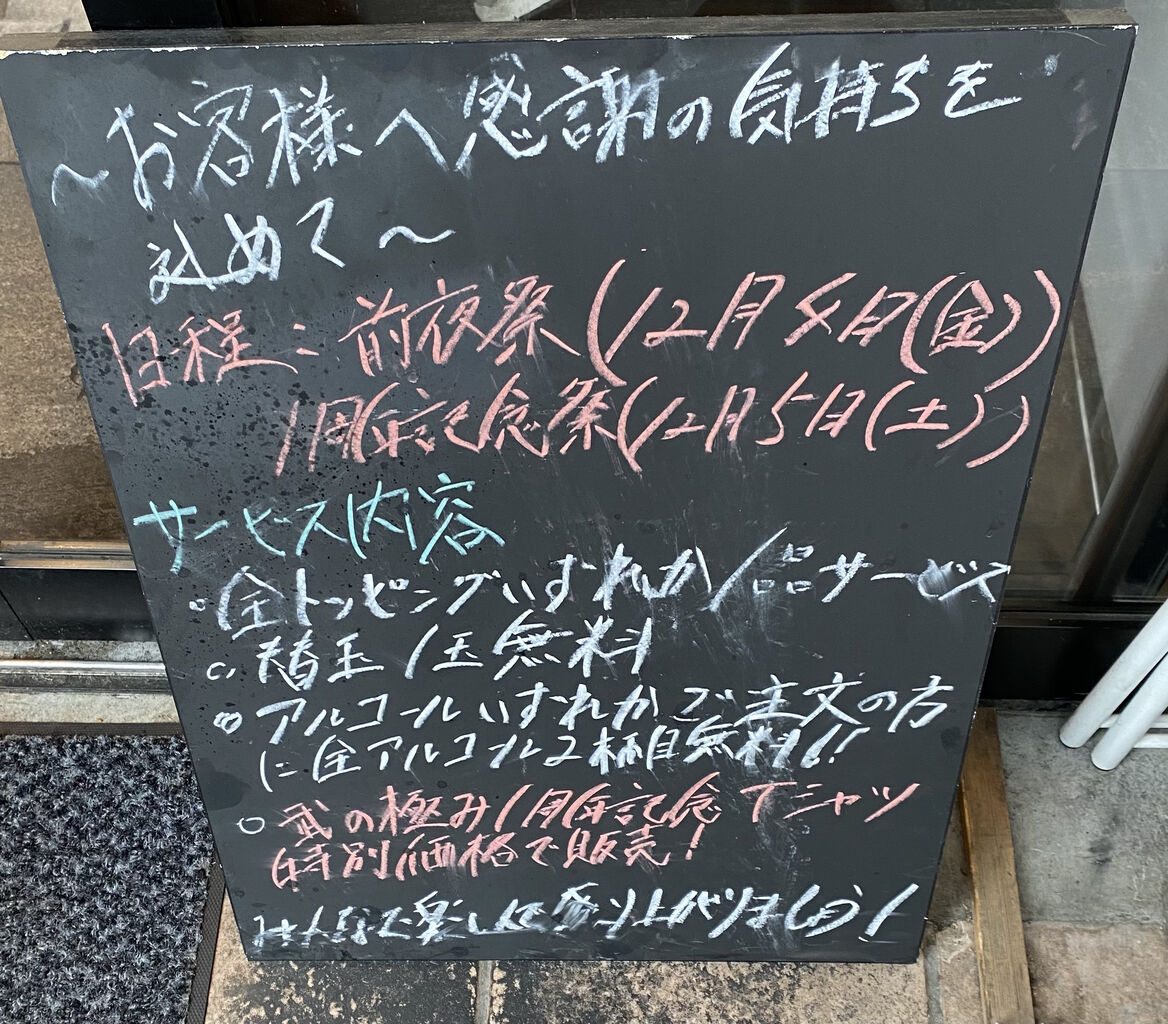 〜お客様へ感謝の気持ちを
込めて〜
日程：前夜祭(12月4日(金))
1周年記念祭(12月5日(土))
サービス内容
○全トッピングいずれか1品サービス
○替玉1玉無料
○アルコールいずれかご注文の方
に全アルコール2杯目無料!!
○武の極み1周年記念Tシャツ
特別価格で販売!
みんなで楽しく盛り上がりましょう!